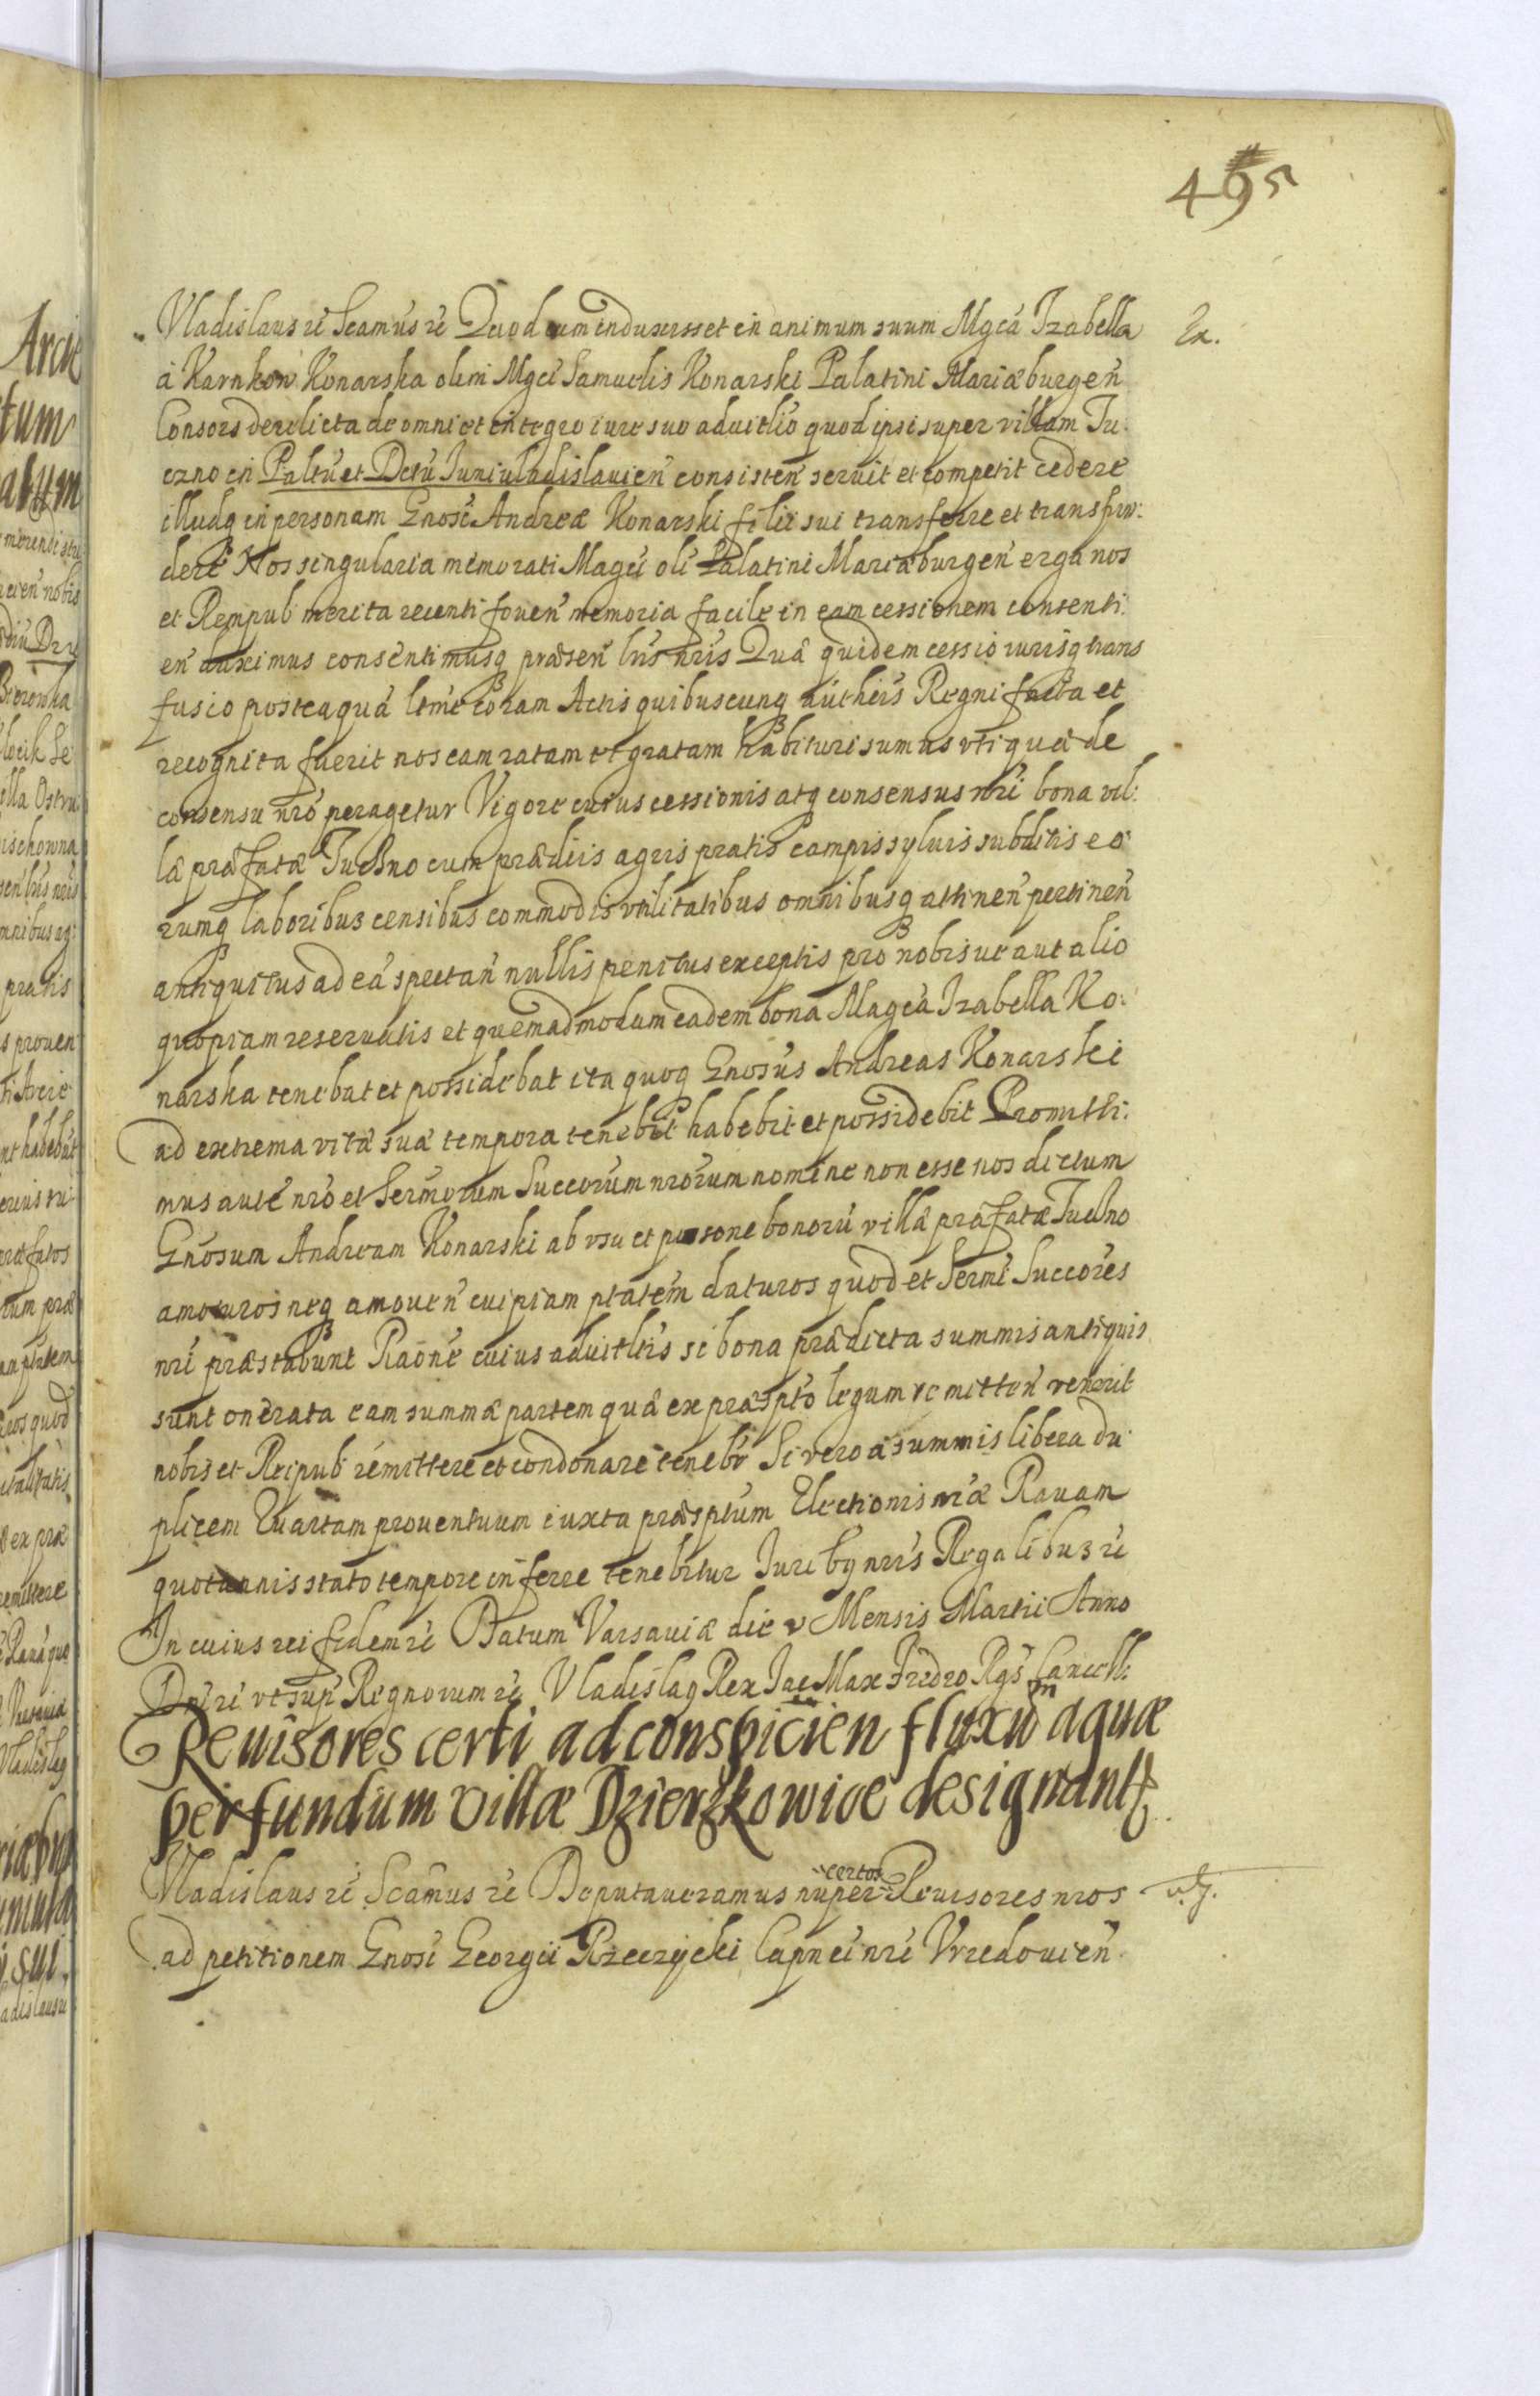 495
Vladislaus rē Scamus rē Quod cum induxisset in animum suum Mgcā Izabella Ex.
à Karnkow Konarska olim Mgcī Samuelis Konarski Palatini Mariæburgeñ
Consors derelicta de omni et integro iure suo aduitlīo quod ipsi super villam Tu:
czno in Paltū et Dctū Iuniuladislauieñ consisteñ seruit et competit cedere
illudq in personam Gnosi Andreæ Konarski filii sui transferre et transfun:
dere Nos singularia memorati Magcī oli Palatini Mariæburgeñ erga nos
et Rempub merita recenti foueñ memoria facile in eam cessionem consenti:
eñ duximus consentimusq præseñ lris nris Quâ quidem cessio iurisq trans
fusio posteaquā ltme coram Actis quibuscunq authcis Regni facta et
recognita fuerit nos eam ratam et gratam habituri sumus vti quæ de
consensu nro peragetur Vigore cuius cessionis atq consensus nri bona vil:
læ præfatæ Tuczno cum prædiis agris pratis campis syluis subditis eo:
rumq laboribus censibus commodis vtilitatibus omnibusq attineñ pertineñ
antiquitus ad eā spectañ nullis penitus exceptis pro nobis ue aut alio
quopiam reseruatis et quemadmodum eadem bona Magcā Izabella Ko:
narska tenebat et possidebat ita quoq Gnosus Andreas Konarski
ad extrema vitæ suæ tempora tenebit habebit et possidebit Promitti:
mus autē nro et Sermorum Succorum nrorum nomine non esse nos dictum
Gnosum Andream Konarski ab vsu et possone bonorū villæ præfatæ Tuczno
amoturos neq amoueñ cuipiam ptatem daturos quod et Sermi Succores
nri præstabunt Raone cuius aduitltis si bona prædicta summis antiquis
sunt onerata eam summæ partem quâ ex præspto legum remitteñ venerit
nobis et Reipub remittere et condonare tenebr Si vero a summis libera du:
plicem Quartam prouentuum iuxta præsptum Electionis nræ Rauam
quotannis stato tempore inferre tenebitur Iurib9 nris Regalibus rē
In cuius rei fidem rē Datum Varsauiæ die v Mensis Martii Anno
Dni rē vt sup Regnorum rē Vladislaq Rex Jac Max Fredro Rgs Cancell:
Reuisores certi ad conspicien fluxū aquæ
per fundum villæ Dzierzkowice designant
Vladislaus rē Scamus rē Deputaueramus nuper certos Reuisores nros
ad petitionem Gnosi Georgii Rzeczycki Capnei nri Vrzedouieñ